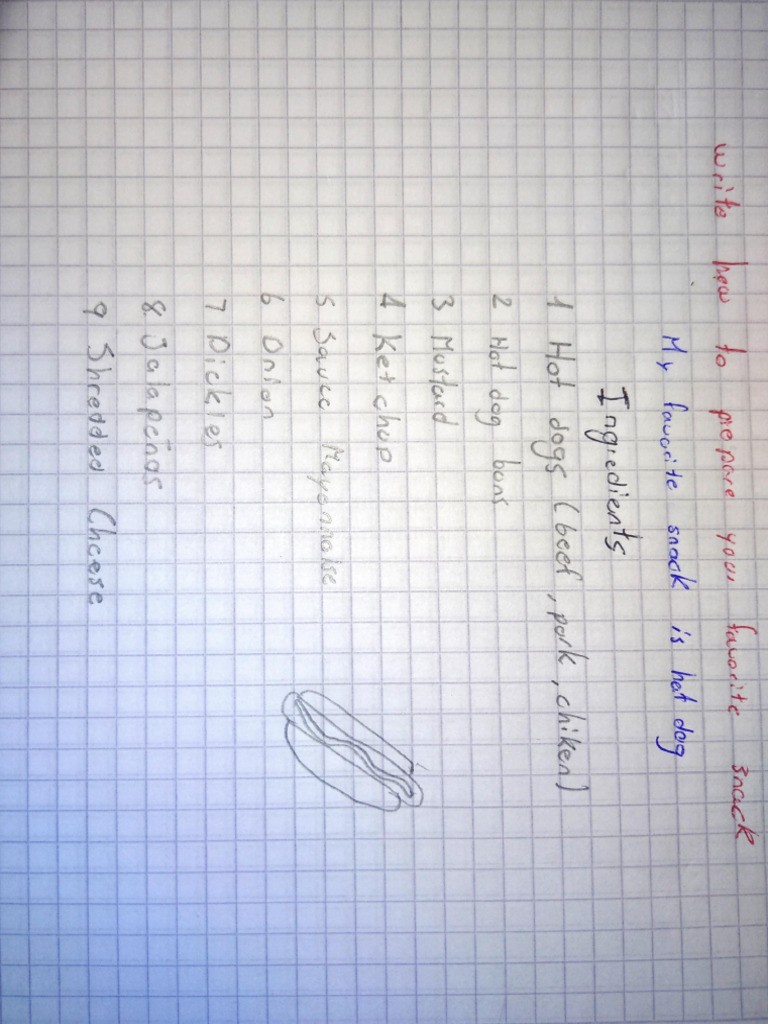 write how to prepare your favorite snack
My favorite snack is hot dog
Ingredients
1 Hot dogs (beef, pork, chiken)
2 Hot dog buns
3 Mustard
4 Ketchup
5 Sauce Mayonnaise
6 Onion
7 Pickles
8 Jalapeños
9 Shredded Cheese